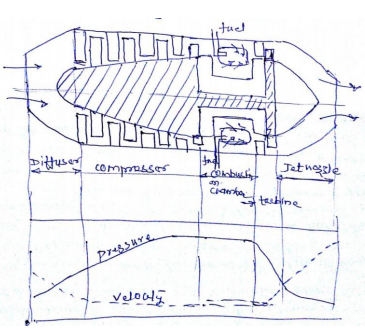 fuel
Diffuser
compressor
fuel
combusti
on
chamber
turbine
Jet nozzle
pressure
velocity